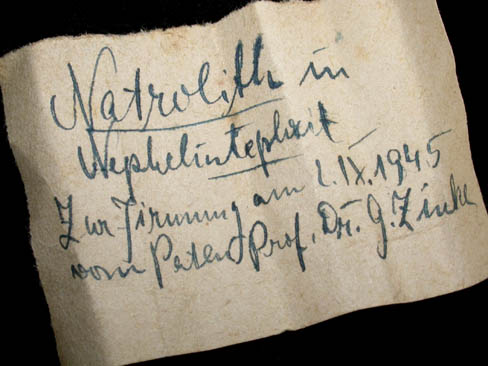 Natrolith in
Nephelintephrit
Zur Firmung am 2.IX.1945
vom Paten Prof. Dr. G. Zinke